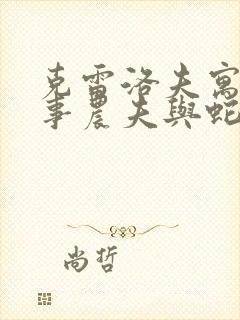 克雷洛夫寓
事農夫與蛇
尚哲